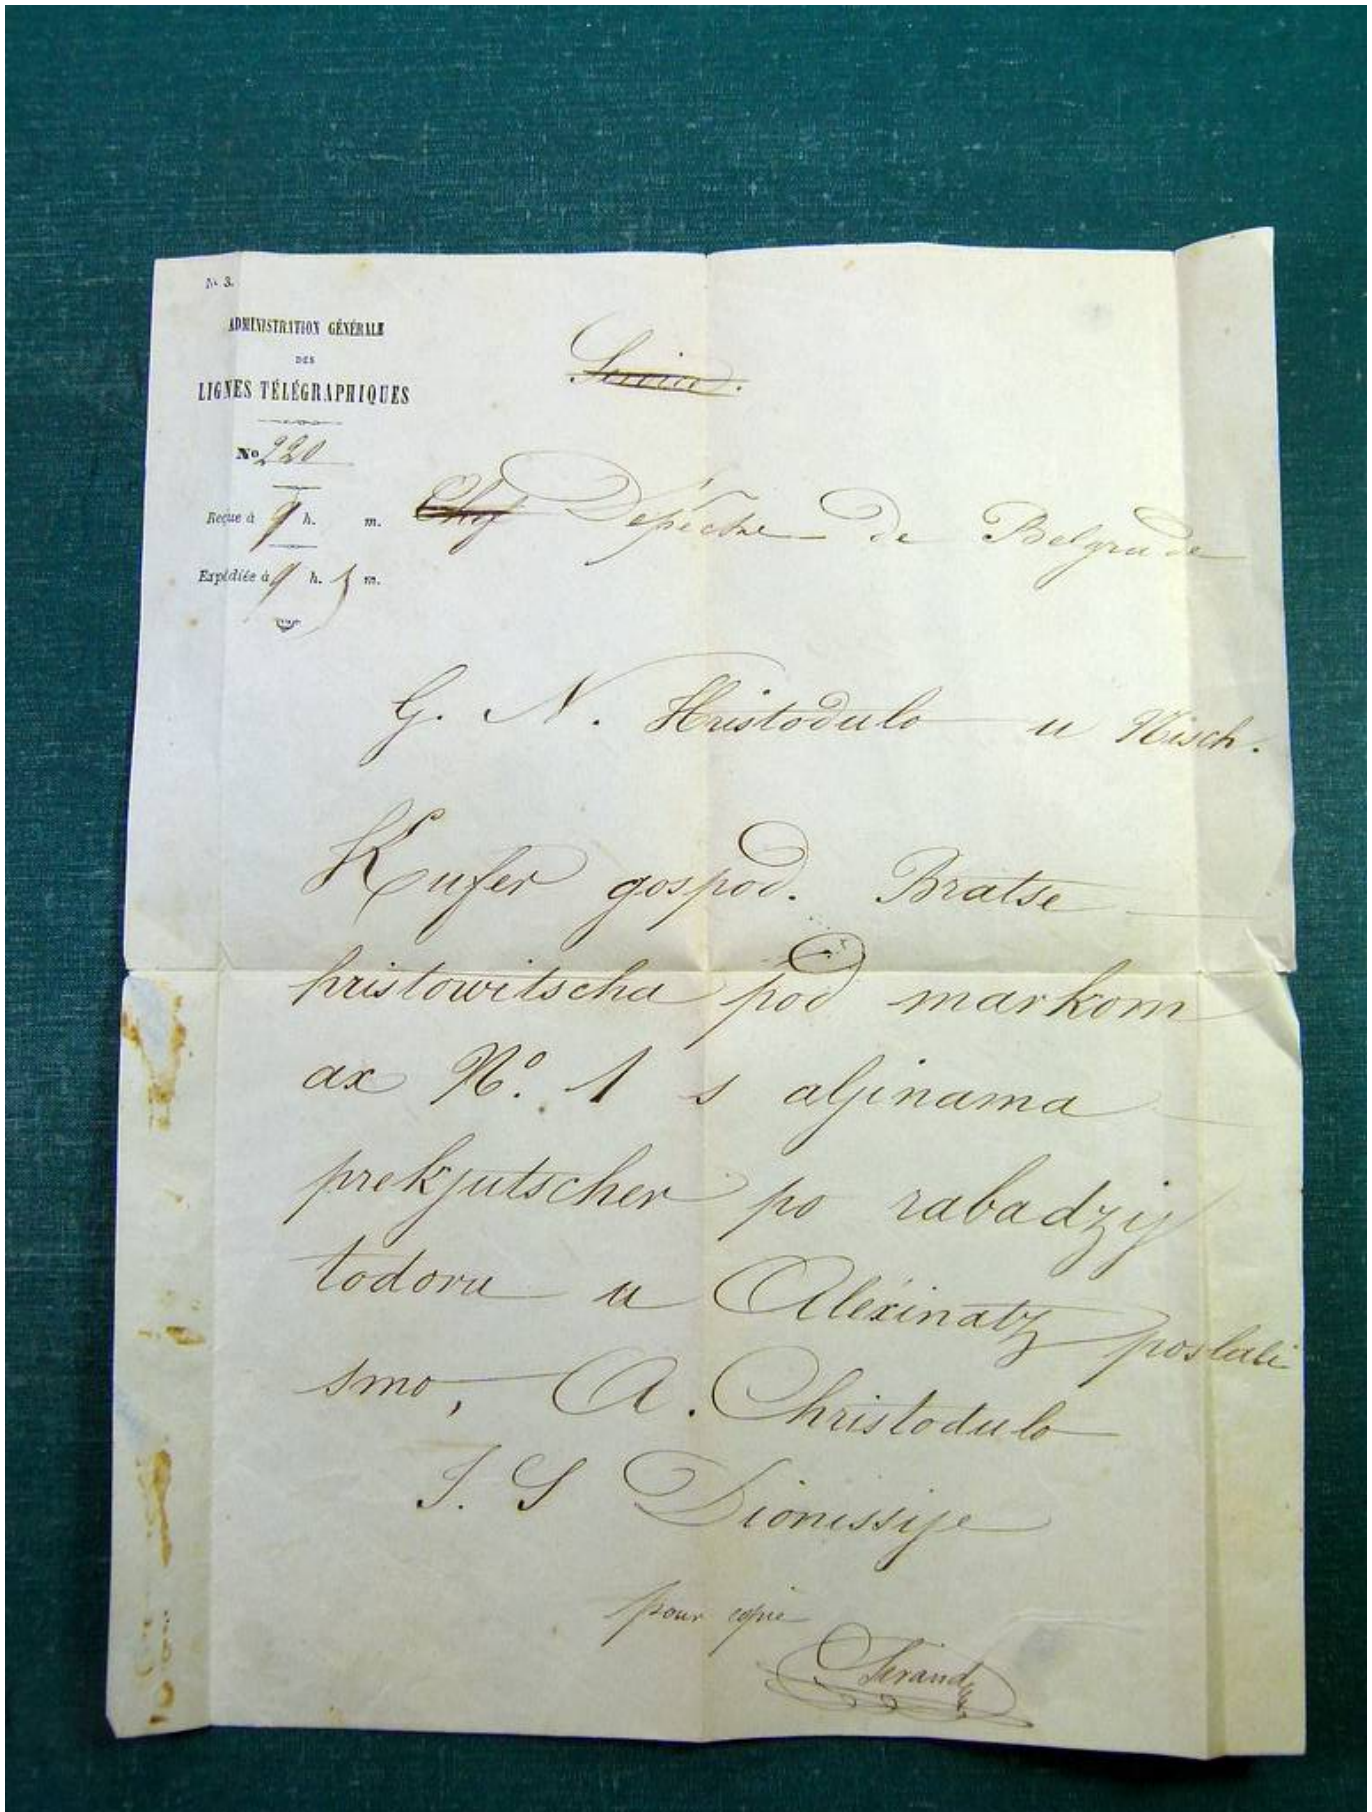 No 3.
ADMINISTRATION GÉNÉRALE
DES
LIGNES TÉLÉGRAPHIQUES
No 220
Reçue à 9 h. m.
Expédiée à 9 h. 5 m.
Service.
Chef Dépêche de Belgrade
G. N. Hristodulo u Nisch.
Kufer gospod. Bratse
hristowitscha pod markom
ax No. 1 s aljinama
prekjutscher po rabadzij
todoru u Alexinatz poslali
smo, A. Christodulo
J. S Dionissije
pour copie